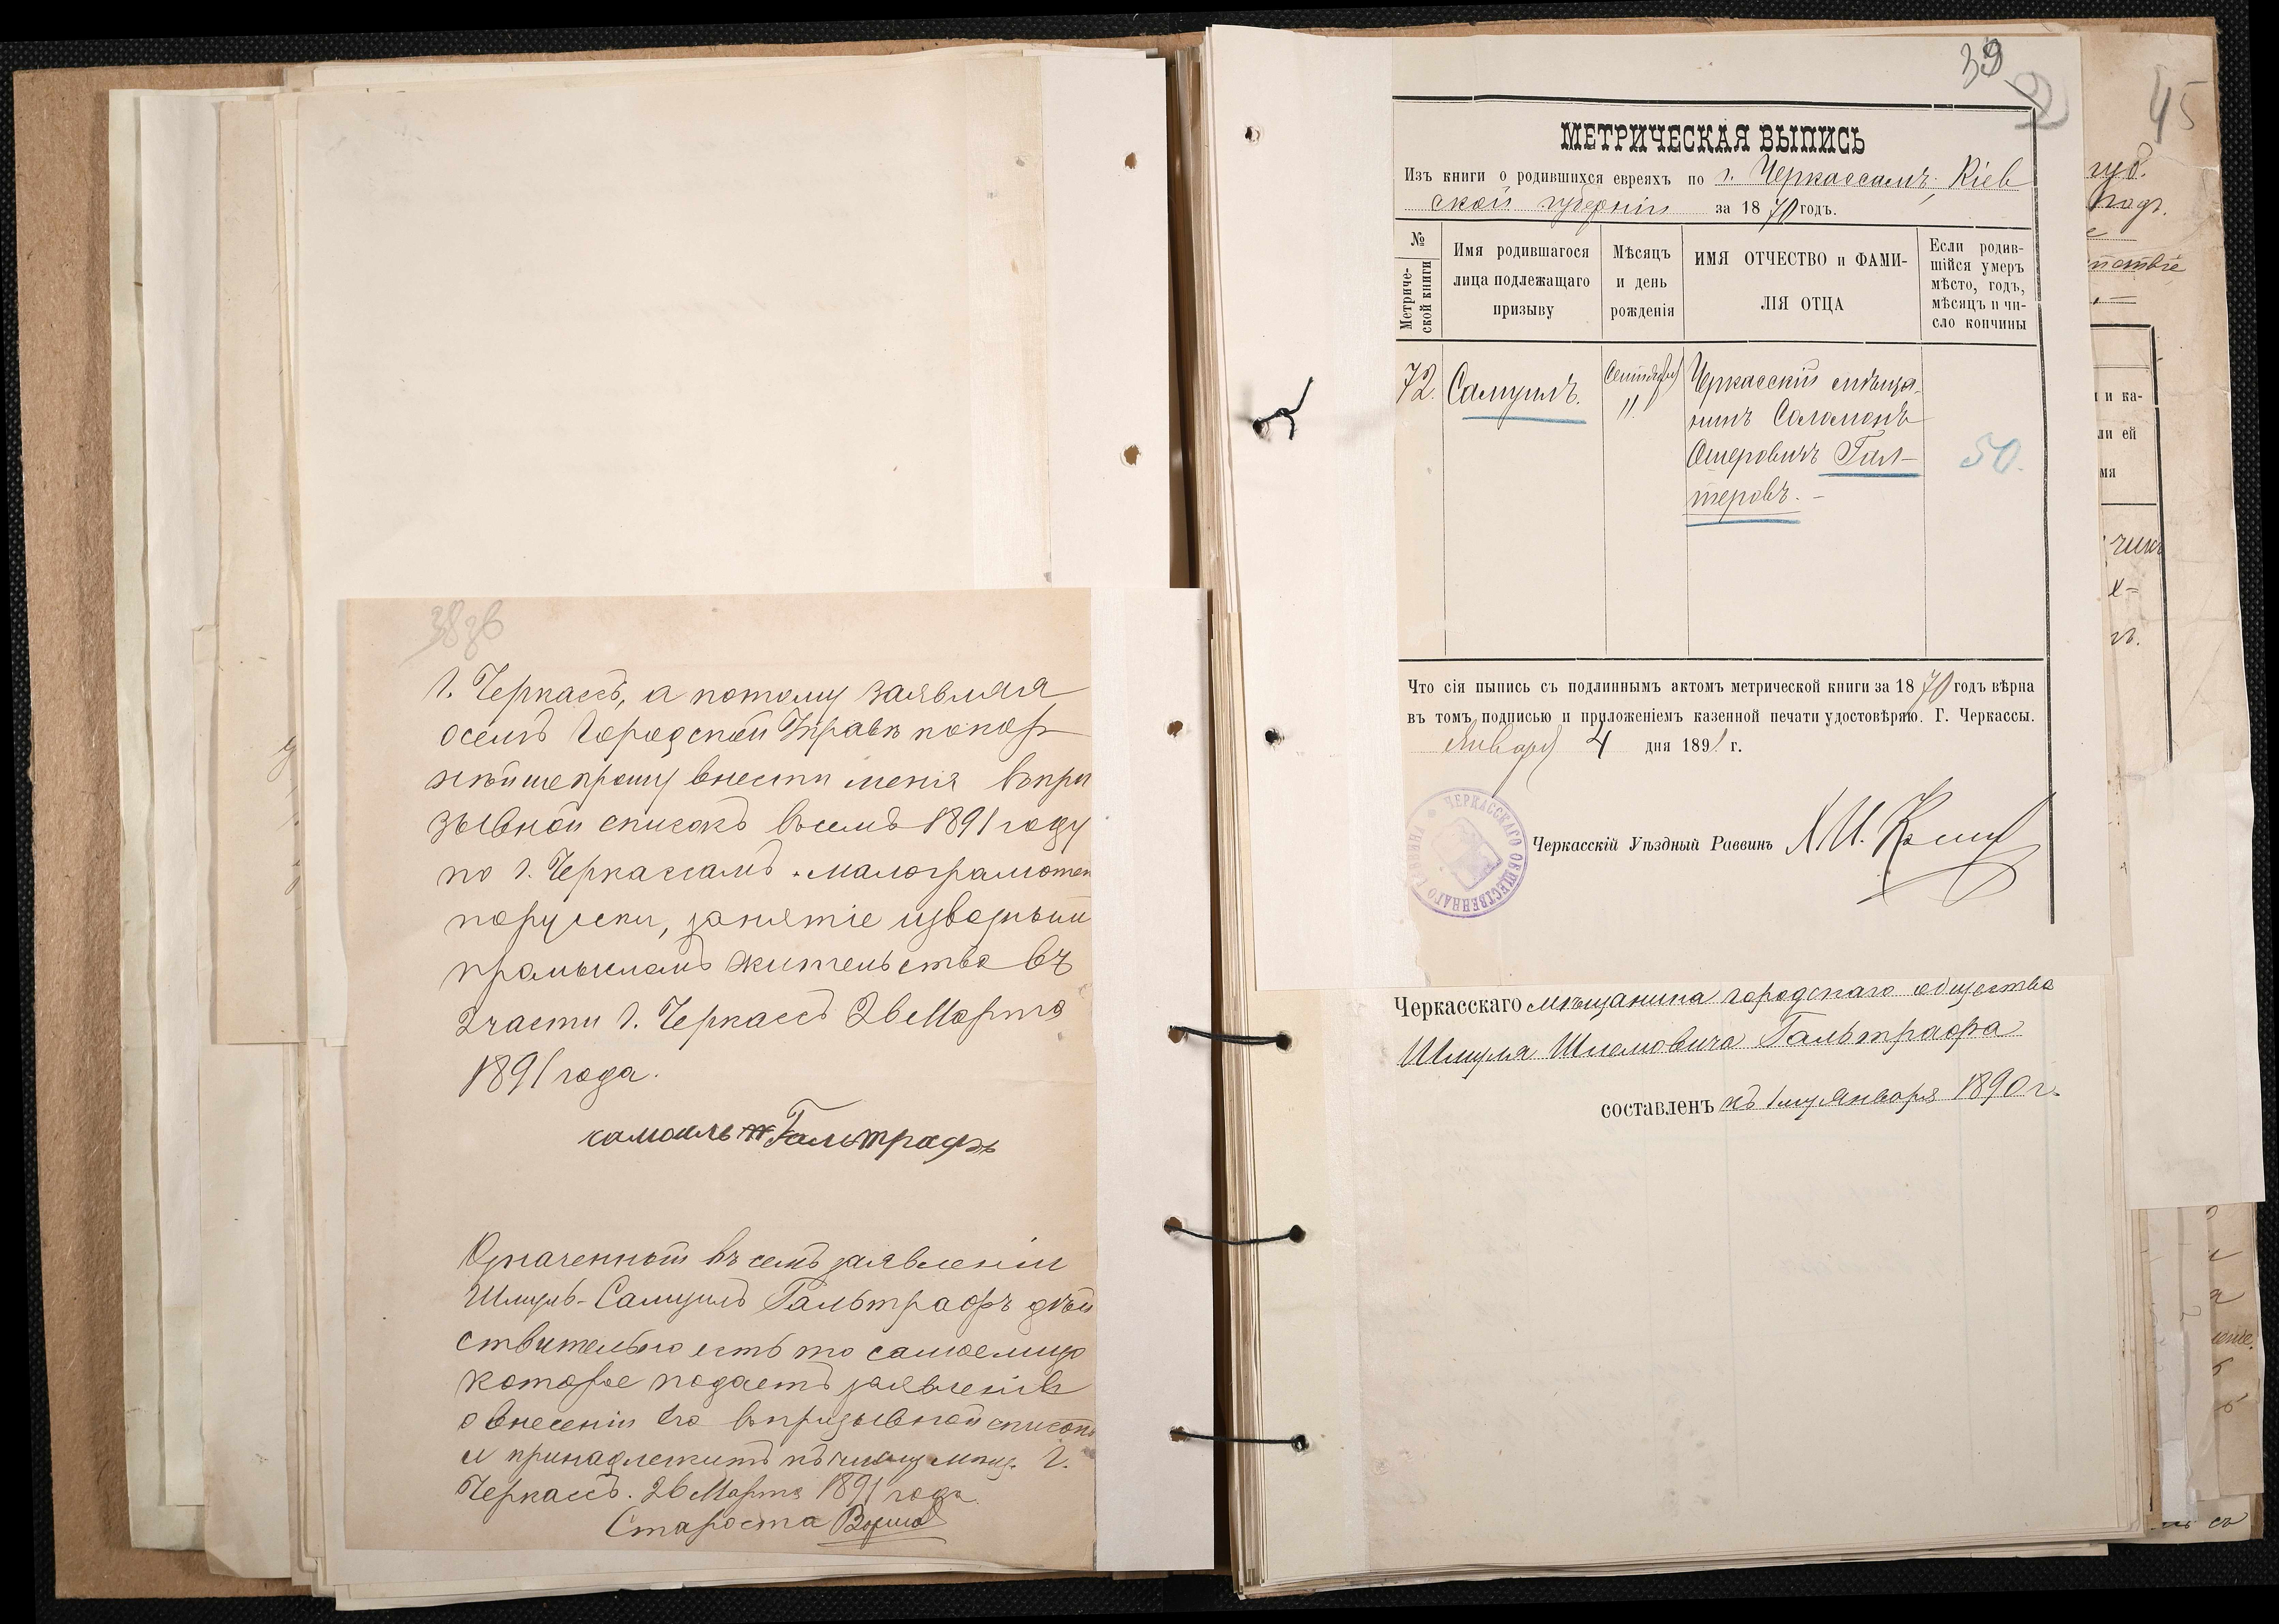 38 об
г. Черкассъ, а потому заявляя
осемъ Городской Управѣ покор
нѣйше прошу внести меня въ при
зывной списокъ въ семъ 1891 году
по г. Черкассамъ. малограмотен
порусски, занятіе извозным
промысломъ жительство въ
2 части г. Черкассъ 26 Марта
1891 года.
самоиль Гальтрафъ
Означенный въ семъ заявленіи
Шмуль-Самуилъ Гальтрафъ дѣй
ствительно есть то самое лицо
которое подаетъ заявленіе
о внесеніи его въ призывной списокъ
и принадлежитъ къ числу мѣщ. г.
Черкассъ. 26 Марта 1891 года.
Староста
39
45
МЕТРИЧЕСКАЯ ВЫПИСЬ
Изъ книги о родившихся евреяхъ по г. Черкассамъ, Кіев
ской губерніи за 1870 годъ.
№ Метриче-
ской книги
Имя родившагося
лица подлежащаго
призыву
Мѣсяцъ
и день
рожденія
ИМЯ ОТЧЕСТВО и ФАМИ-
ЛІЯ ОТЦА
Если родив-
шійся умеръ
мѣсто, годъ,
мѣсяцъ и чи-
сло кончины
72.
Самуилъ.
Сентября
11.
Черкасскій мѣща-
нинъ Соломонъ
Ошеровичъ Гал-
теровъ. –
50.
Что сія выпись съ подлиннымъ актомъ метрической книги за 1870 годъ вѣрна
въ томъ подписью и приложеніемъ казенной печати удостовѣряю. Г. Черкассы.
Января 4 дня 1891 г.
ЧЕРКАССКАГО ОБЩЕСТВЕННАГО РАВВИНА
Черкасскій Уѣздный Раввинъ
Черкасскаго мѣщанина городскаго общества
Шмуля Шлемовича Гальтрафа
составленъ къ 1му Января 1890 г.